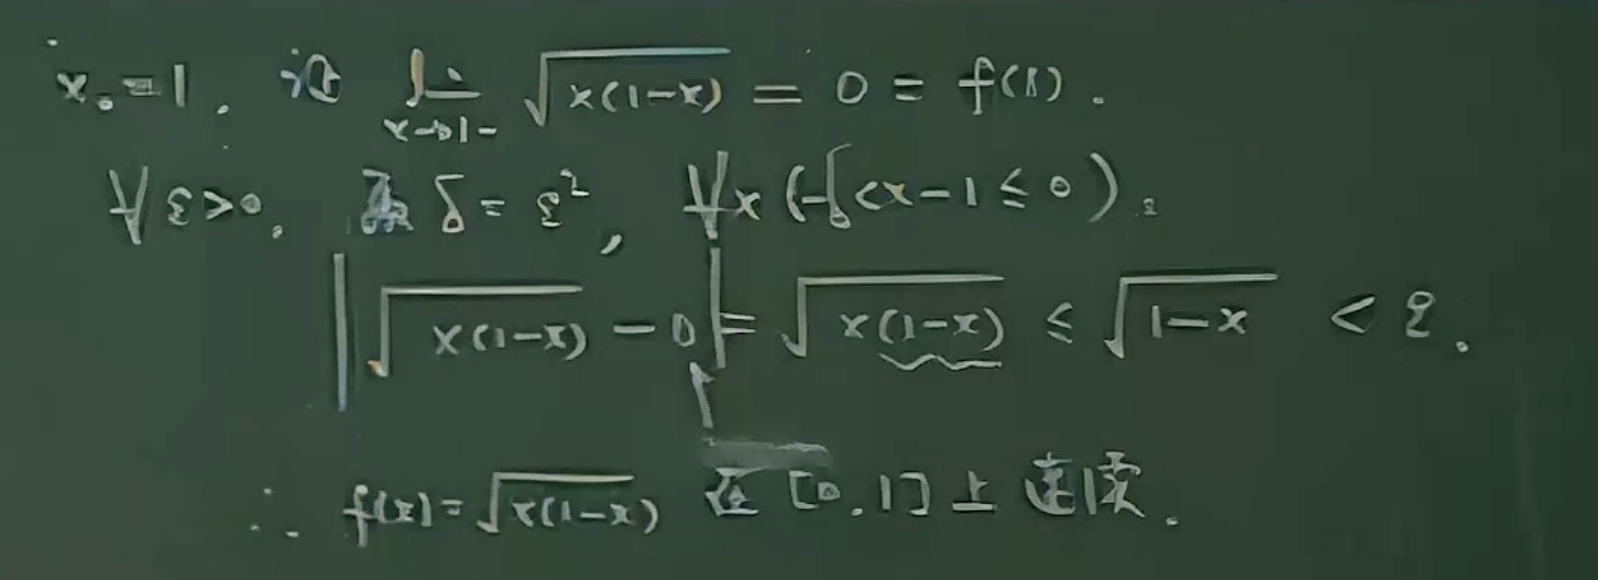 x₀=1. 证 lim_{x→1-} √(x(1-x)) = 0 = f(1).
∀ε>0. 取 δ=ε², ∀x (-δ<x-1≤0).
|√(x(1-x)) - 0| = √(x(1-x)) ≤ √(1-x) < ε.
∴ f(x)=√(x(1-x)) 在 [0.1] 上连续.